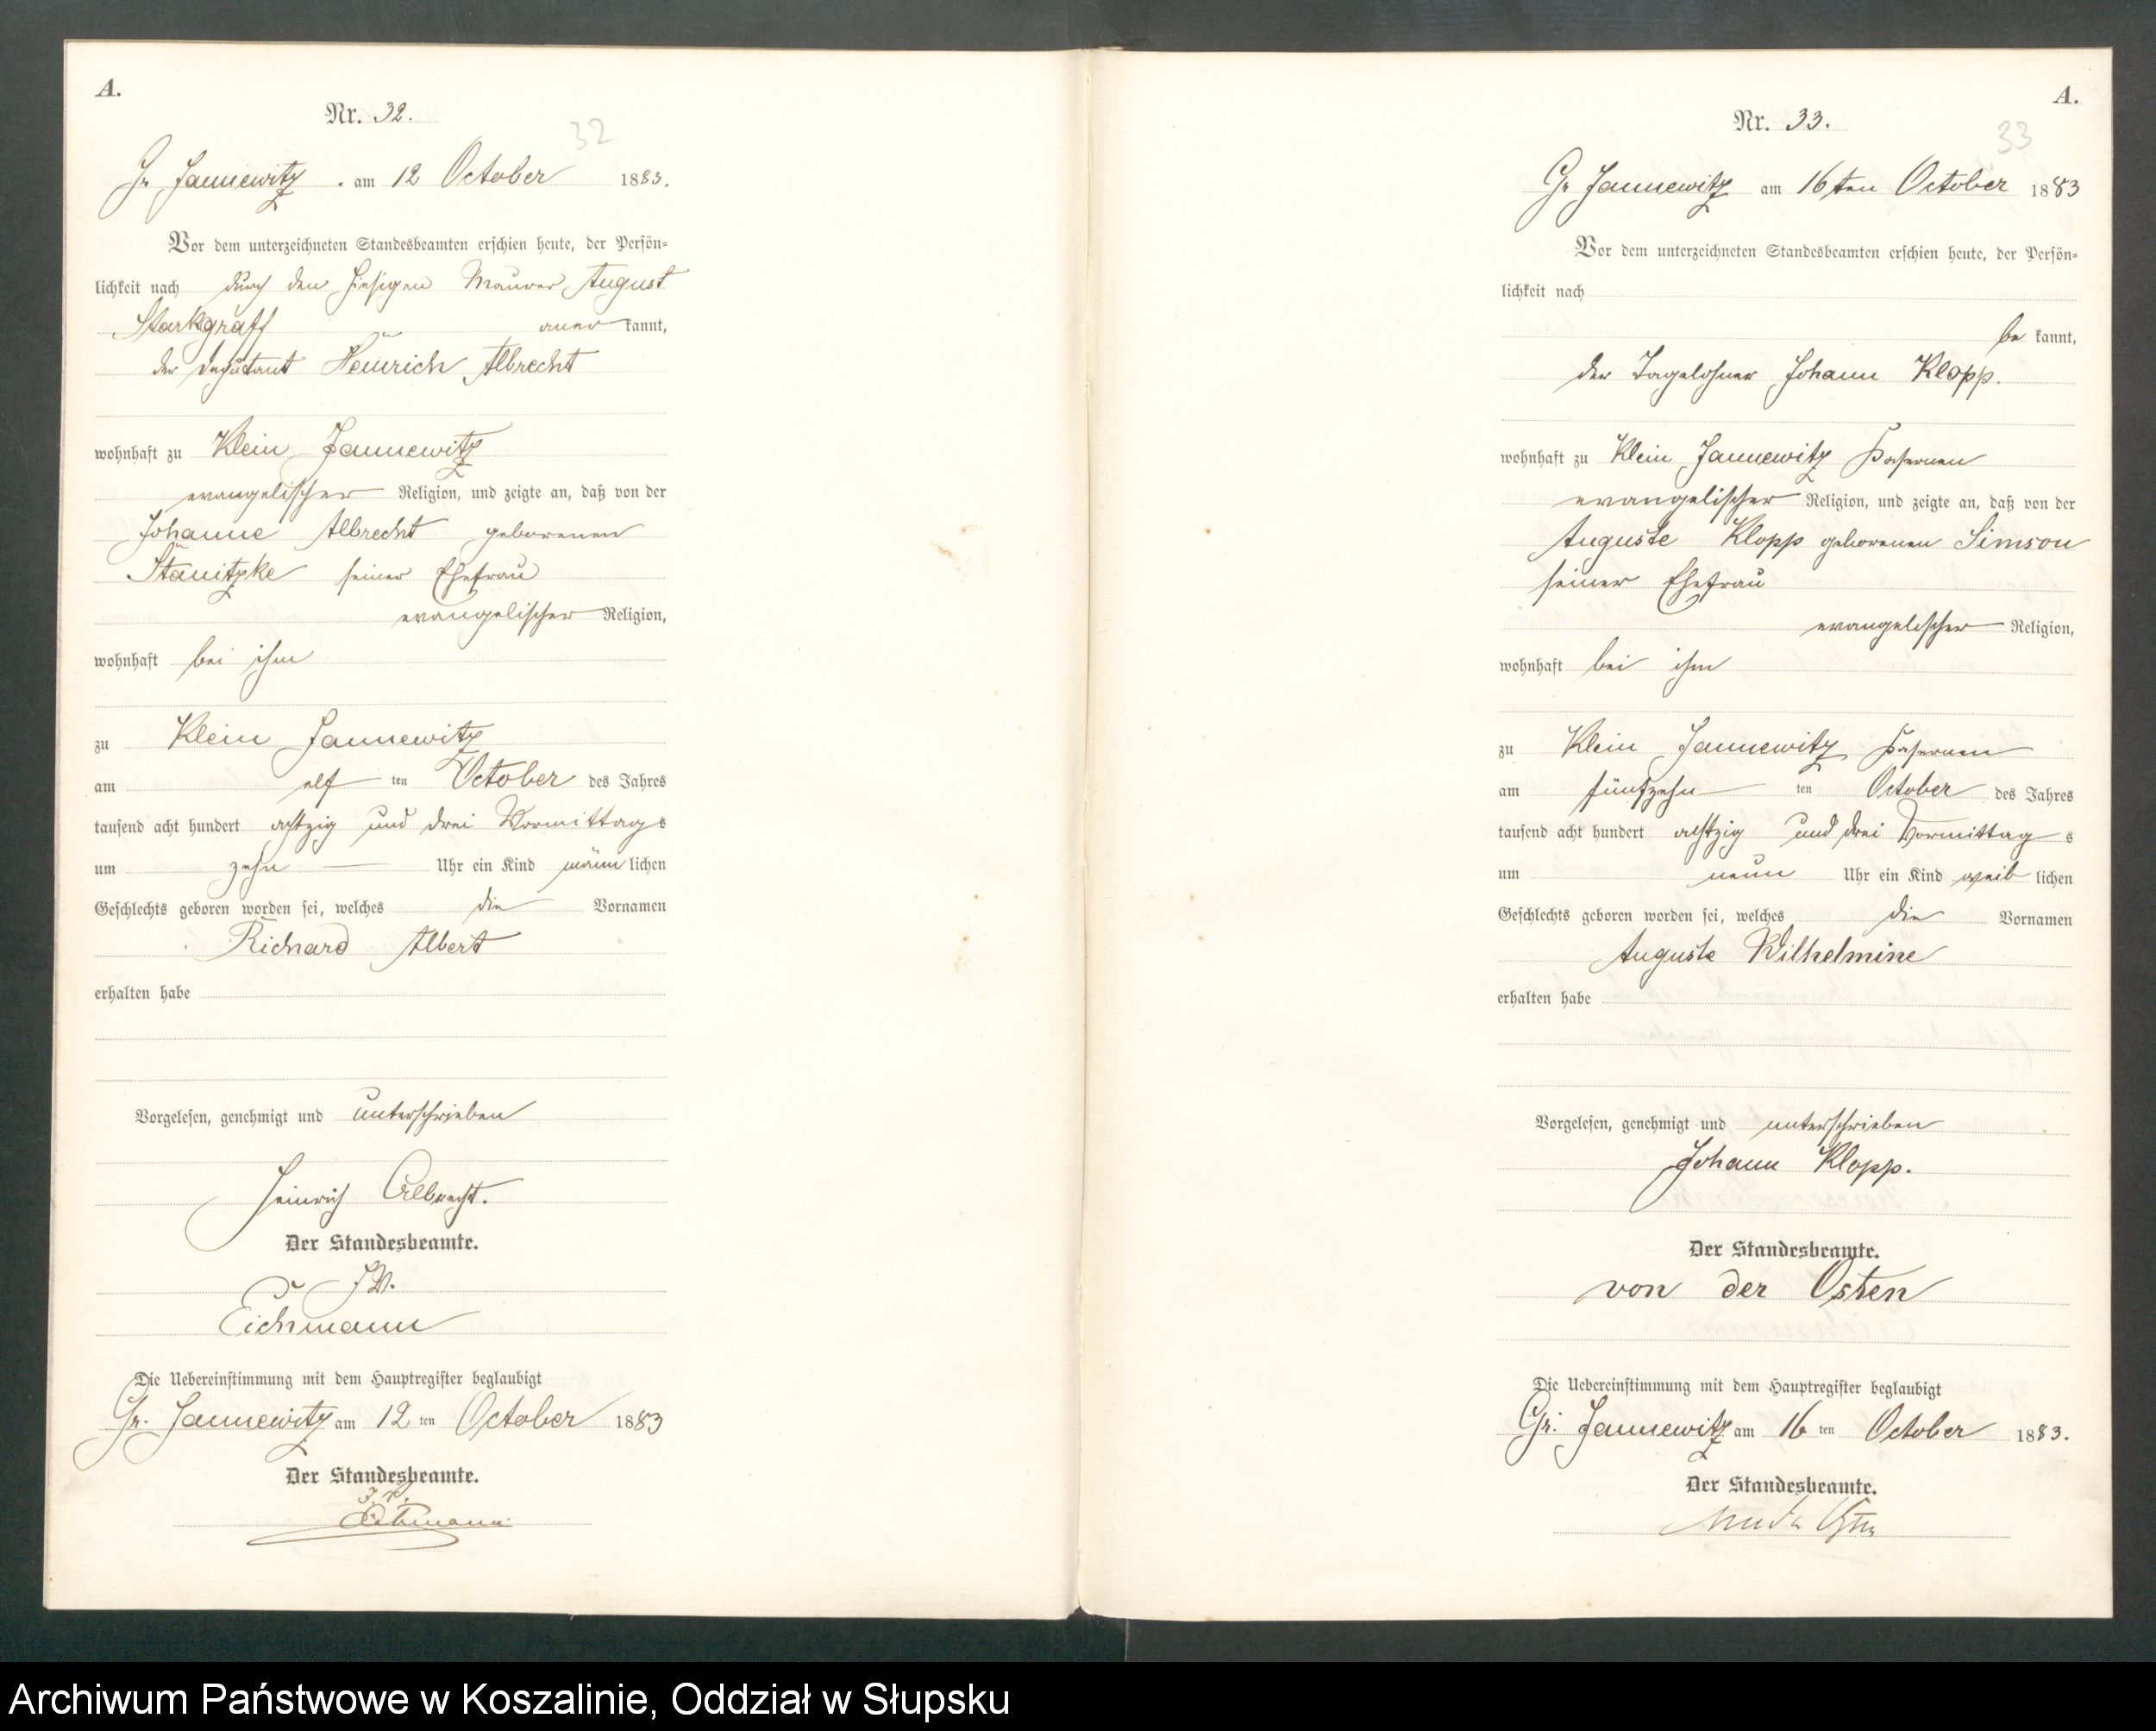 A.
Nr. 32.
32
Gr Jannewitz . am 12 October 1883.
Vor dem unterzeichneten Standesbeamten erschien heute, der Persön=
lichkeit nach durch den hiesigen Maurer August
Starkgraff aner kannt,
der Deputant Heinrich Albrecht
wohnhaft zu Klein Jannewitz
evangelischer Religion, und zeigte an, daß von der
Johanne Albrecht geborenen
Stanitzke seiner Ehefrau
evangelischer Religion,
wohnhaft bei ihm
zu Klein Jannewitz
am elf ten October des Jahres
tausend acht hundert achtzig und drei Vormittag s
um zehn Uhr ein Kind männ lichen
Geschlechts geboren worden sei, welches die Vornamen
Richard Albert
erhalten habe
Vorgelesen, genehmigt und unterschrieben
Heinrich Albrecht.
Der Standesbeamte.
J.V.
Eichmann
Die Uebereinstimmung mit dem Hauptregister beglaubigt
Gr. Jannewitz am 12 ten October 1883
Der Standesbeamte.
J.V.
Eichmann
A.
Nr. 33.
33
Gr Jannewitz am 16ten October 1883
Vor dem unterzeichneten Standesbeamten erschien heute, der Persön=
lichkeit nach
be kannt,
der Tagelohner Johann Klopp.
wohnhaft zu Klein Jannewitz
evangelischer Religion, und zeigte an, daß von der
Auguste Klopp geborenen Simson
seiner Ehefrau
evangelischer Religion,
wohnhaft bei ihm
zu Klein Jannewitz
am fünfzehn ten October des Jahres
tausend acht hundert achtzig und drei Vormittag s
um neun Uhr ein Kind weib lichen
Geschlechts geboren worden sei, welches die Vornamen
Auguste Wilhelmine
erhalten habe
Vorgelesen, genehmigt und unterschrieben
Johann Klopp.
Der Standesbeamte.
von der Osten
Die Uebereinstimmung mit dem Hauptregister beglaubigt
Gr. Jannewitz am 16 ten October 1883.
Der Standesbeamte.
von der Osten
Archiwum Państwowe w Koszalinie, Oddział w Słupsku